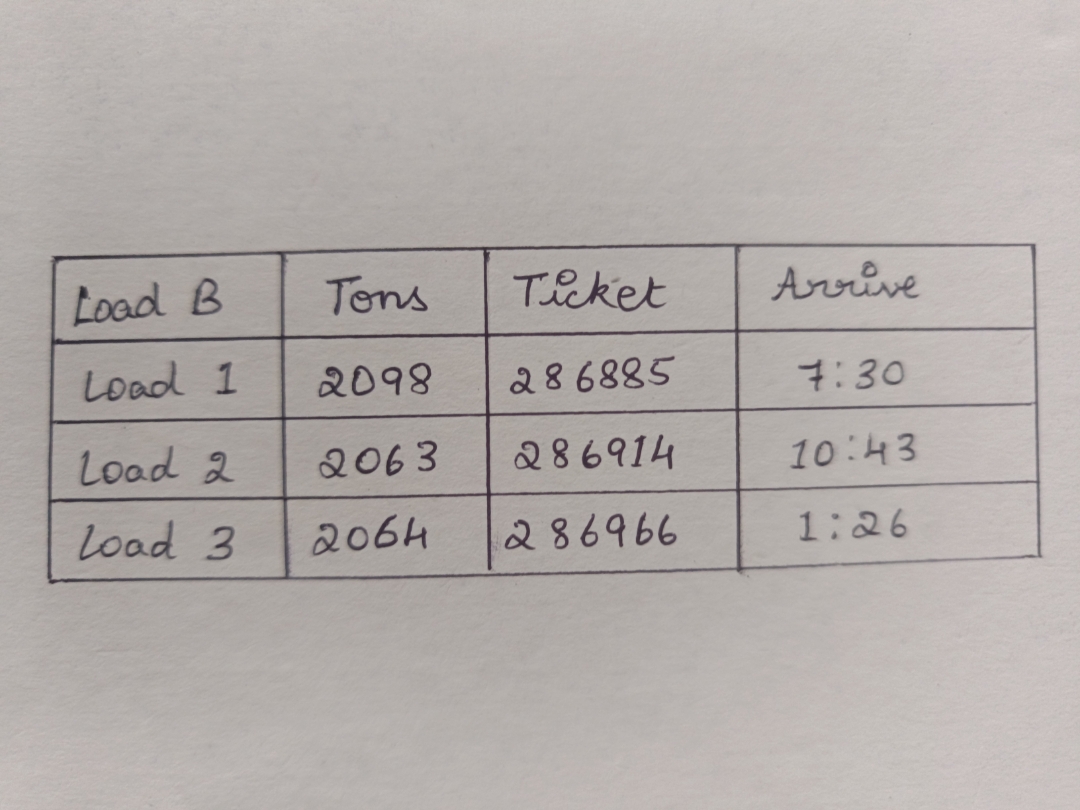 Load B Tons Ticket Arrive
Load 1 2098 286885 7:30
Load 2 2063 286914 10:43
Load 3 2064 286966 1:26